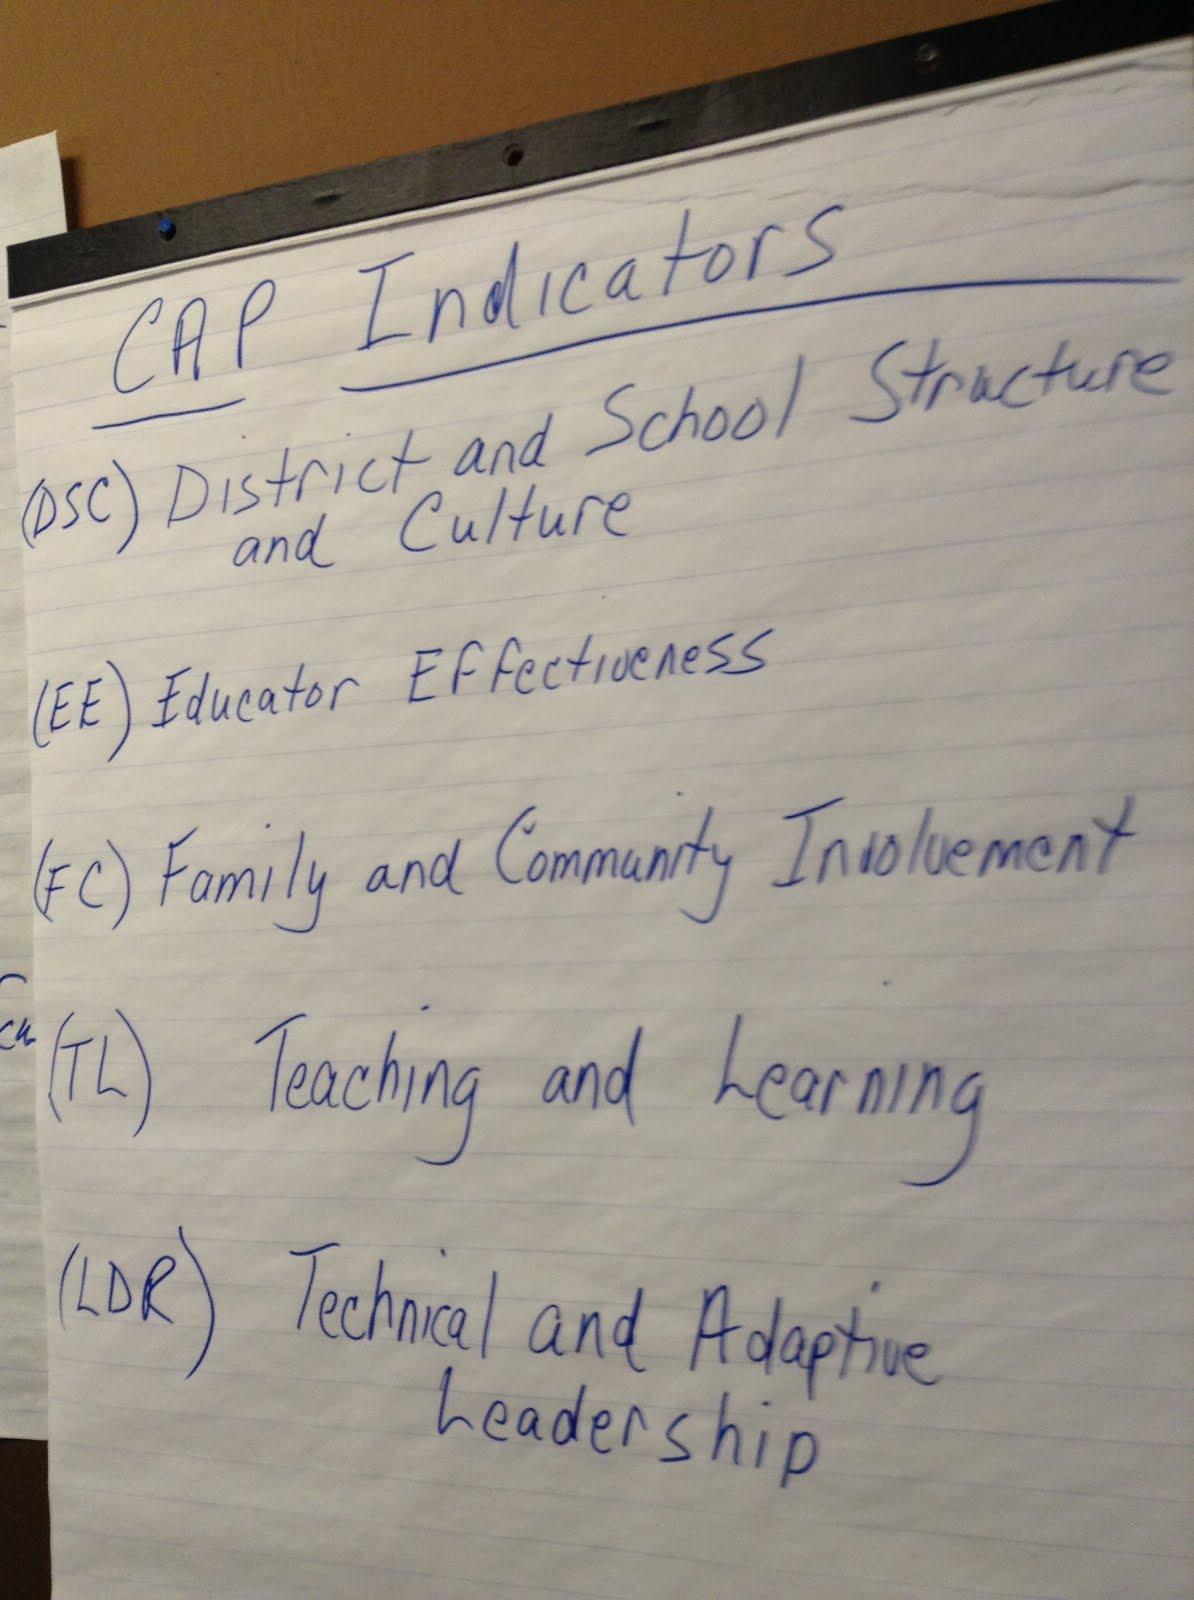 CAP Indicators
(DSC) District and School Structure
and Culture
(EE) Educator Effectiveness
(FC) Family and Community Involvement
(TL) Teaching and Learning
(LDR) Technical and Adaptive
Leadership